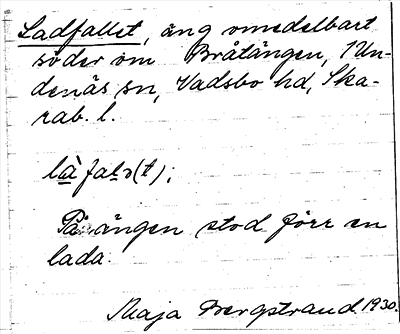 Ladfallet, äng omedelbart
söder om Bråtängen, Un-
denäs sn, Vadsbo hd, Ska-
rab. l.
På ängen stod förr en
lada.
Maja Bergstrand 1930.